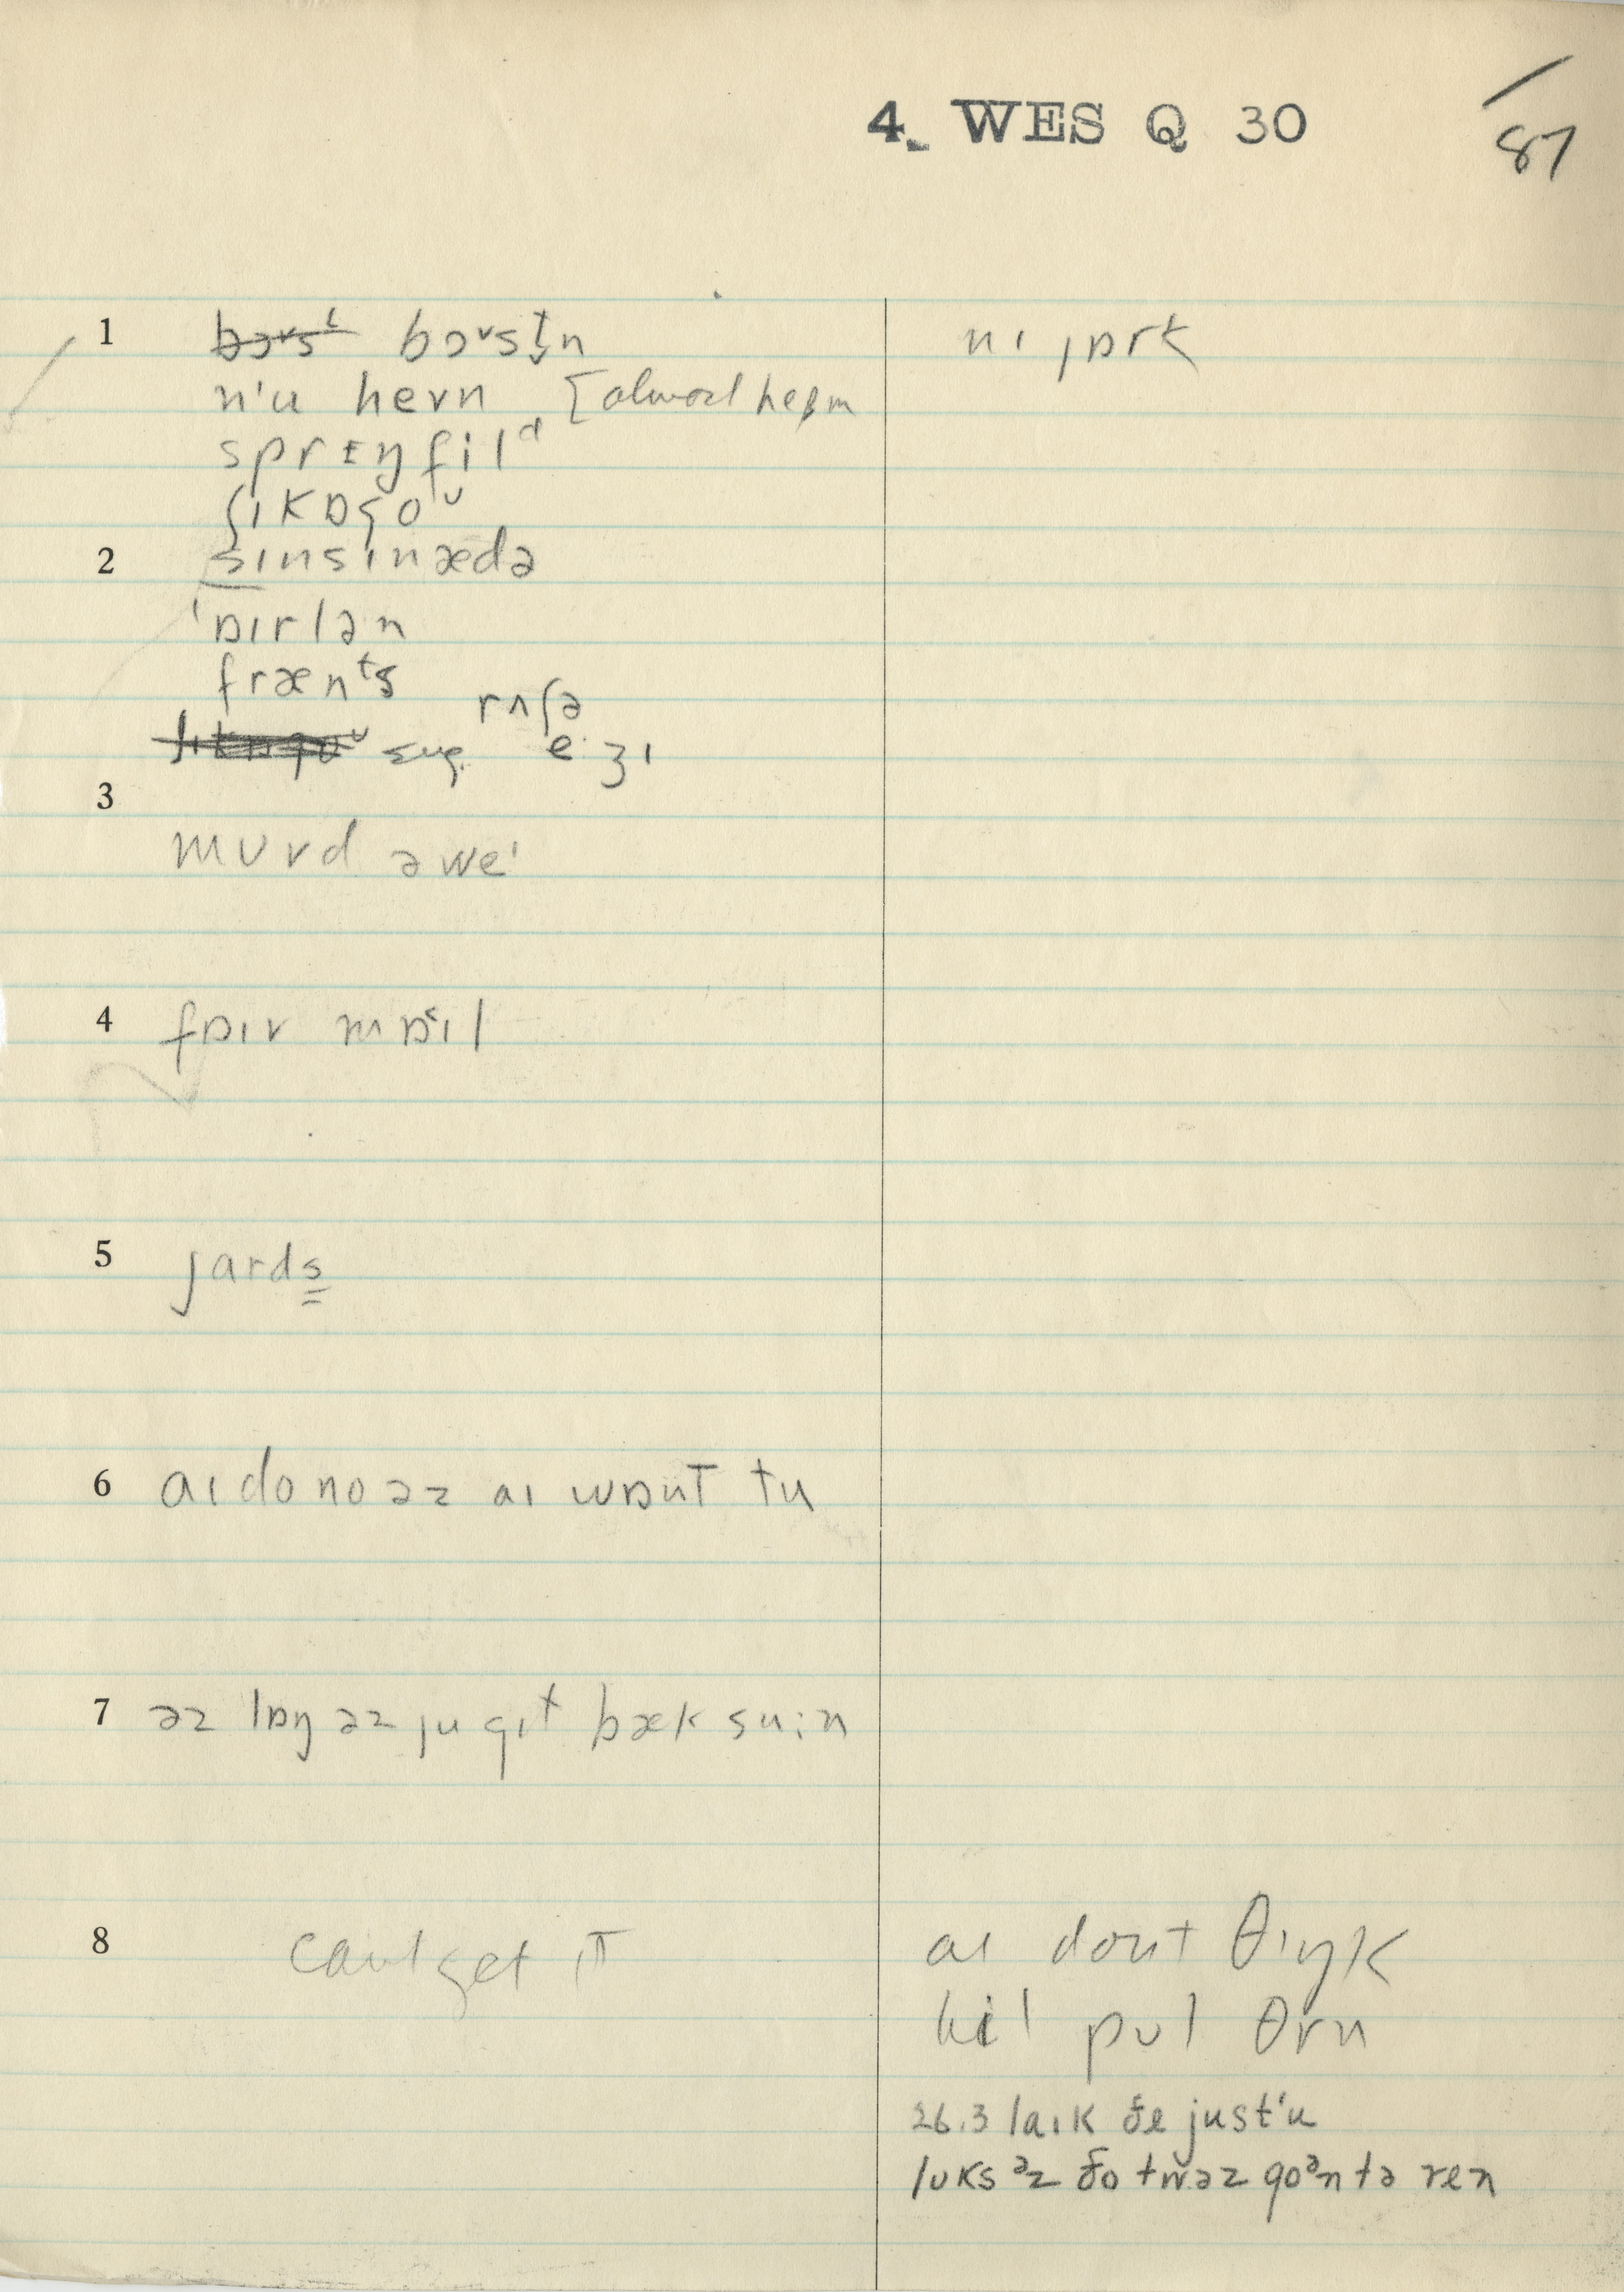 4. WES Q 30
/
87
1 bɔᵛsᵗ bɔᵛstn̩ nɪ jɒrk
n'u hevn [almost hebm
sprɪŋfilᵈ
ʃɪkɒgoᵁ
2 sɪnsɪnædə
'ɒɪrlən
frænᵗs
rʌʃə
ʃɪkɒgoᵁ sug. e·ʒɪ
3
muvd əweˈ
4 fɒɪv mɒ˂ɪl
5 jards
6 aɪ do no əz aɪ wɒnt tu
7 əz lɒŋ əz ju gɪt bæk su:n
8 can't get it aɪ dont θɪŋk
hil pul θru
26.3 laɪk ðe just'u
lʊks ᵊz ðo twəz goᵊn tə ren